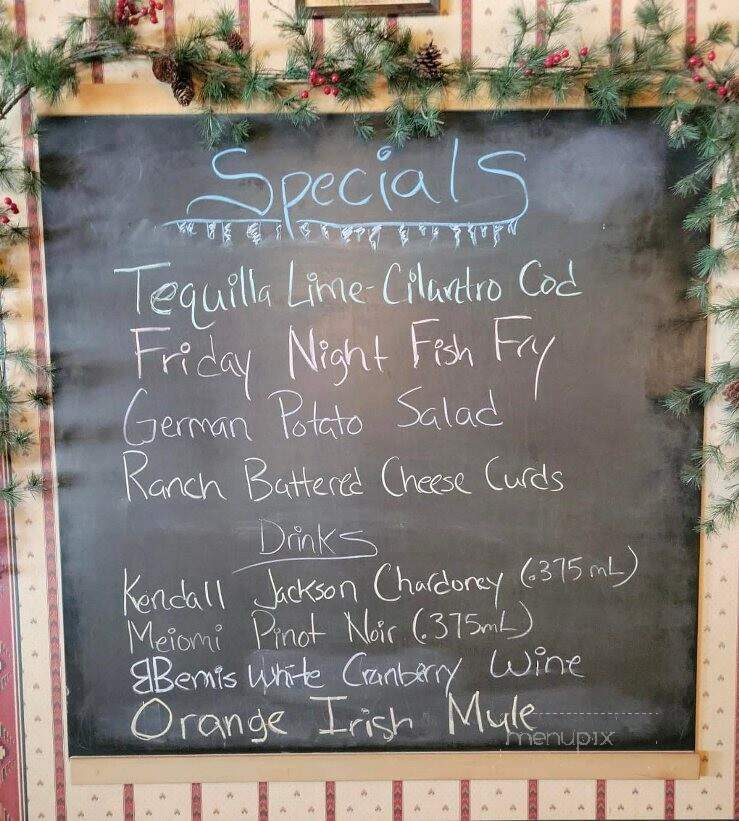 Specials
Tequilla Lime-Cilantro Cod
Friday Night Fish Fry
German Potato Salad
Ranch Battered Cheese Curds
Drinks
Kendall Jackson Chardoney (.375 mL)
Meiomi Pinot Noir (.375mL)
Bemis White Cranberry Wine
Orange Irish Mule
menupix